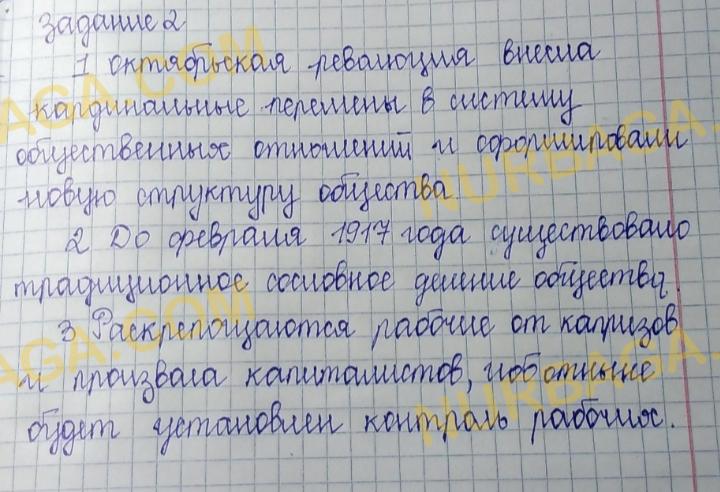 задание 2
1 октябрьская революция внесла
кардинальные перемены в систему
общественных отношений и сформировали
новую структуру общества
2 До февраля 1917 года существовало
традиционное сословное деление общества.
3 Раскрепощаются рабочие от капризов
и произвала капиталистов, ибо отныне
будет установлен контроль рабочих.
NURBAGA.COM